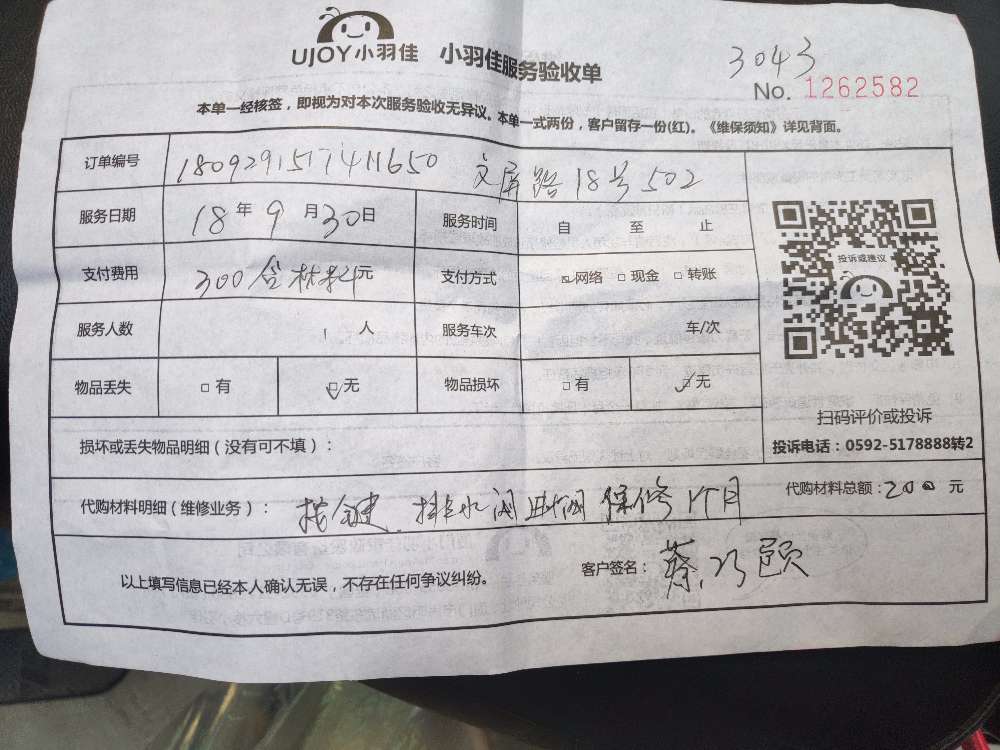 UJOY小羽佳 小羽佳服务验收单
3043
No. 1262582
本单一经核签，即视为对本次服务验收无异议。本单一式两份，客户留存一份(红)。《维保须知》详见背面。
订单编号 180929151741 1650 文屏路18号502
服务日期 18年9月30日 服务时间 自 至 止
投诉或建议
支付费用 300含材料元 支付方式 网络 现金 转账
服务人数 1人 服务车次 车/次
物品丢失 有 无 物品损坏 有 无
扫码评价或投诉
投诉电话：0592-5178888转2
损坏或丢失物品明细（没有可不填）：
代购材料明细（维修业务）： 按键 排水阀 进水阀 保修1个月 代购材料总额：200元
以上填写信息已经本人确认无误，不存在任何争议纠纷。 客户签名：蔡